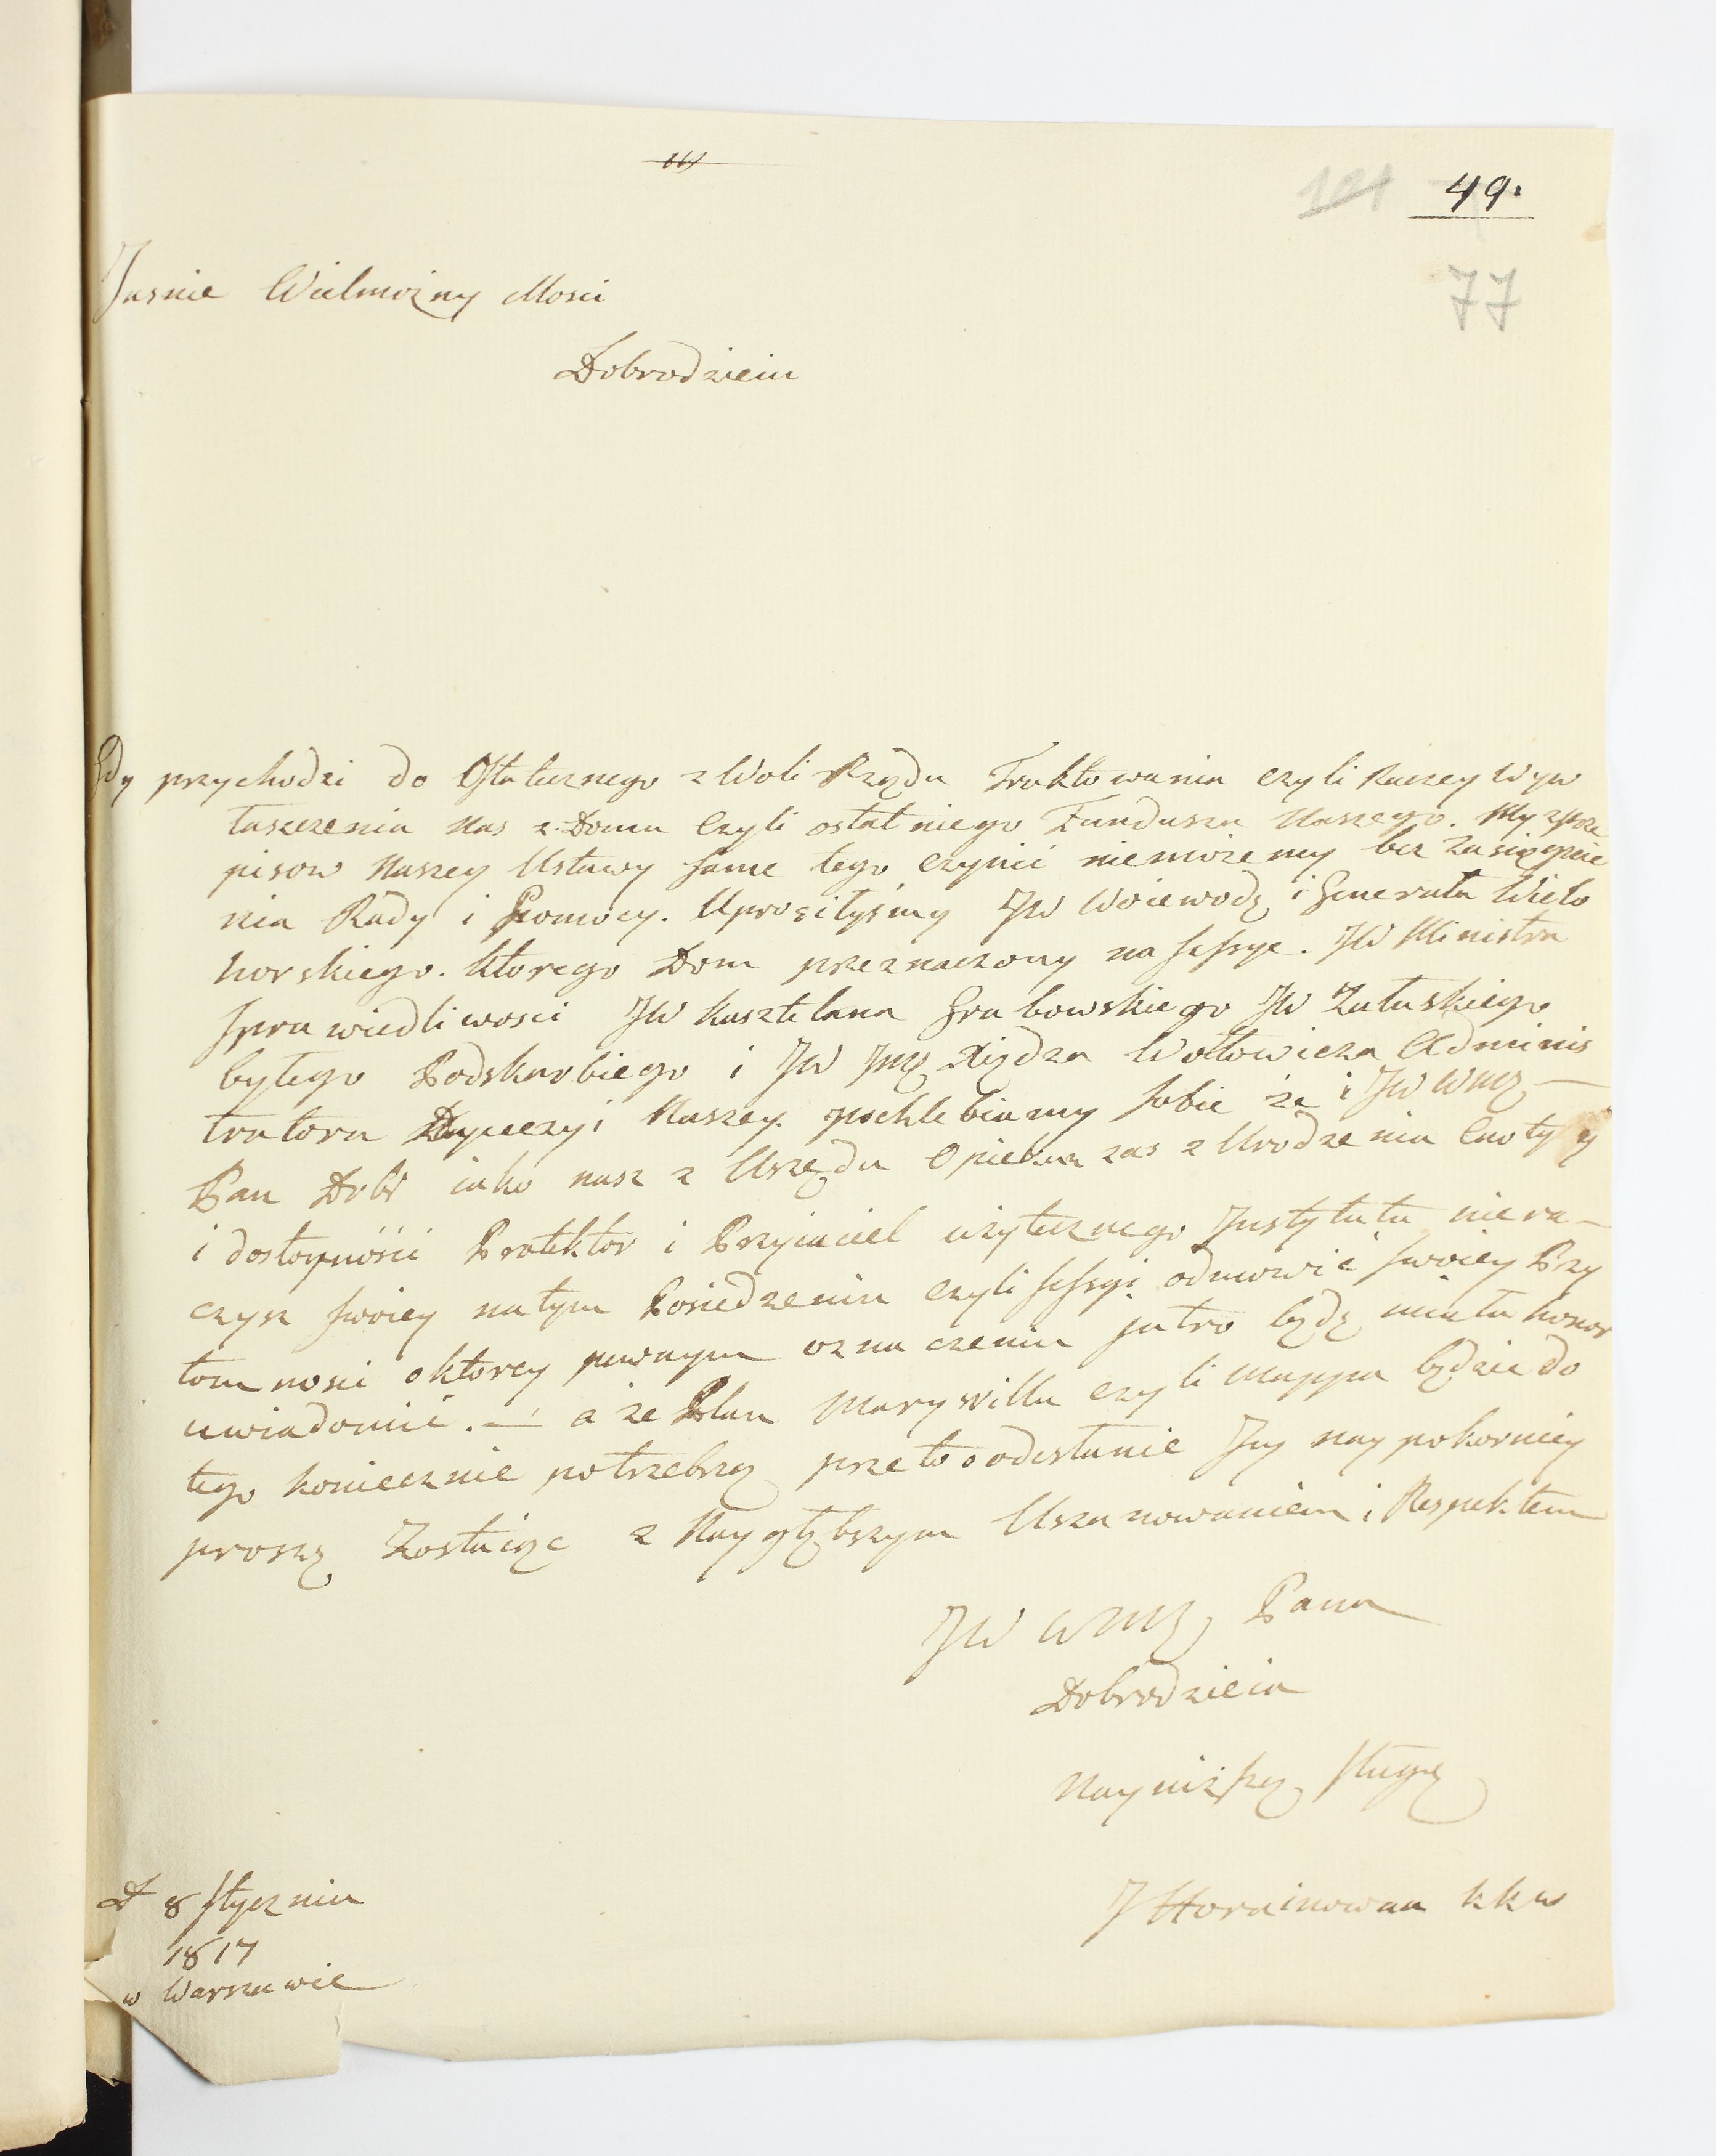 101 49.
77
Jasnie Wielmożny Mosci
Dobrodzieiu
Gdy przychodzi do Ostatecznego z Woli Rządu Traktowania czyli Raczey Wyw
łaszczenia Nas z Domu Czyli ostatniego Funduszu Naszego. My z prze
pisow Naszey Ustawy same tego czynić niemożemy bez Zasięgnie
nia Rady i Pomocy. Uprosiłyśmy JW Woiewodę i Generała Wielo
horskiego. którego Dom przeznaczony na sessye. JW Ministra
sprawiedliwosci JW Kasztelana Grabowskiego JW Załuskiego
byłego Podskarbiego i JW Jmę Xiędza Wołłowicza Adminis
tratora Dyecezyi Naszey. pochlebiamy sobie że i JW WMę —
Pan Dobr iako nasz z Urzędu Opiekun zas z Urodzenia Cnoty
i dostoyności Protektor i Przyiaciel użytecznego Instytutu niera—
czysz swoiey na tym Posiedzeniu czyli sessyi odmowić swoiey Przy
tomnosci o ktorey pewnym oznaczeniu jutro będę miała honor
uwiadomić. — a że Plan Marywillu czyli Mappa będzie do
tego koniecznie potrzebną przeto o odesłanie Jey naypokorniey
proszę Zostaiąc z Naygłębszym Uszanowaniem i Respektem
JW WMę Pana
Dobrodzieia
Nayniższą sługą
J Horainowna k k w
D 8 stycznia
1817
w Warszawie